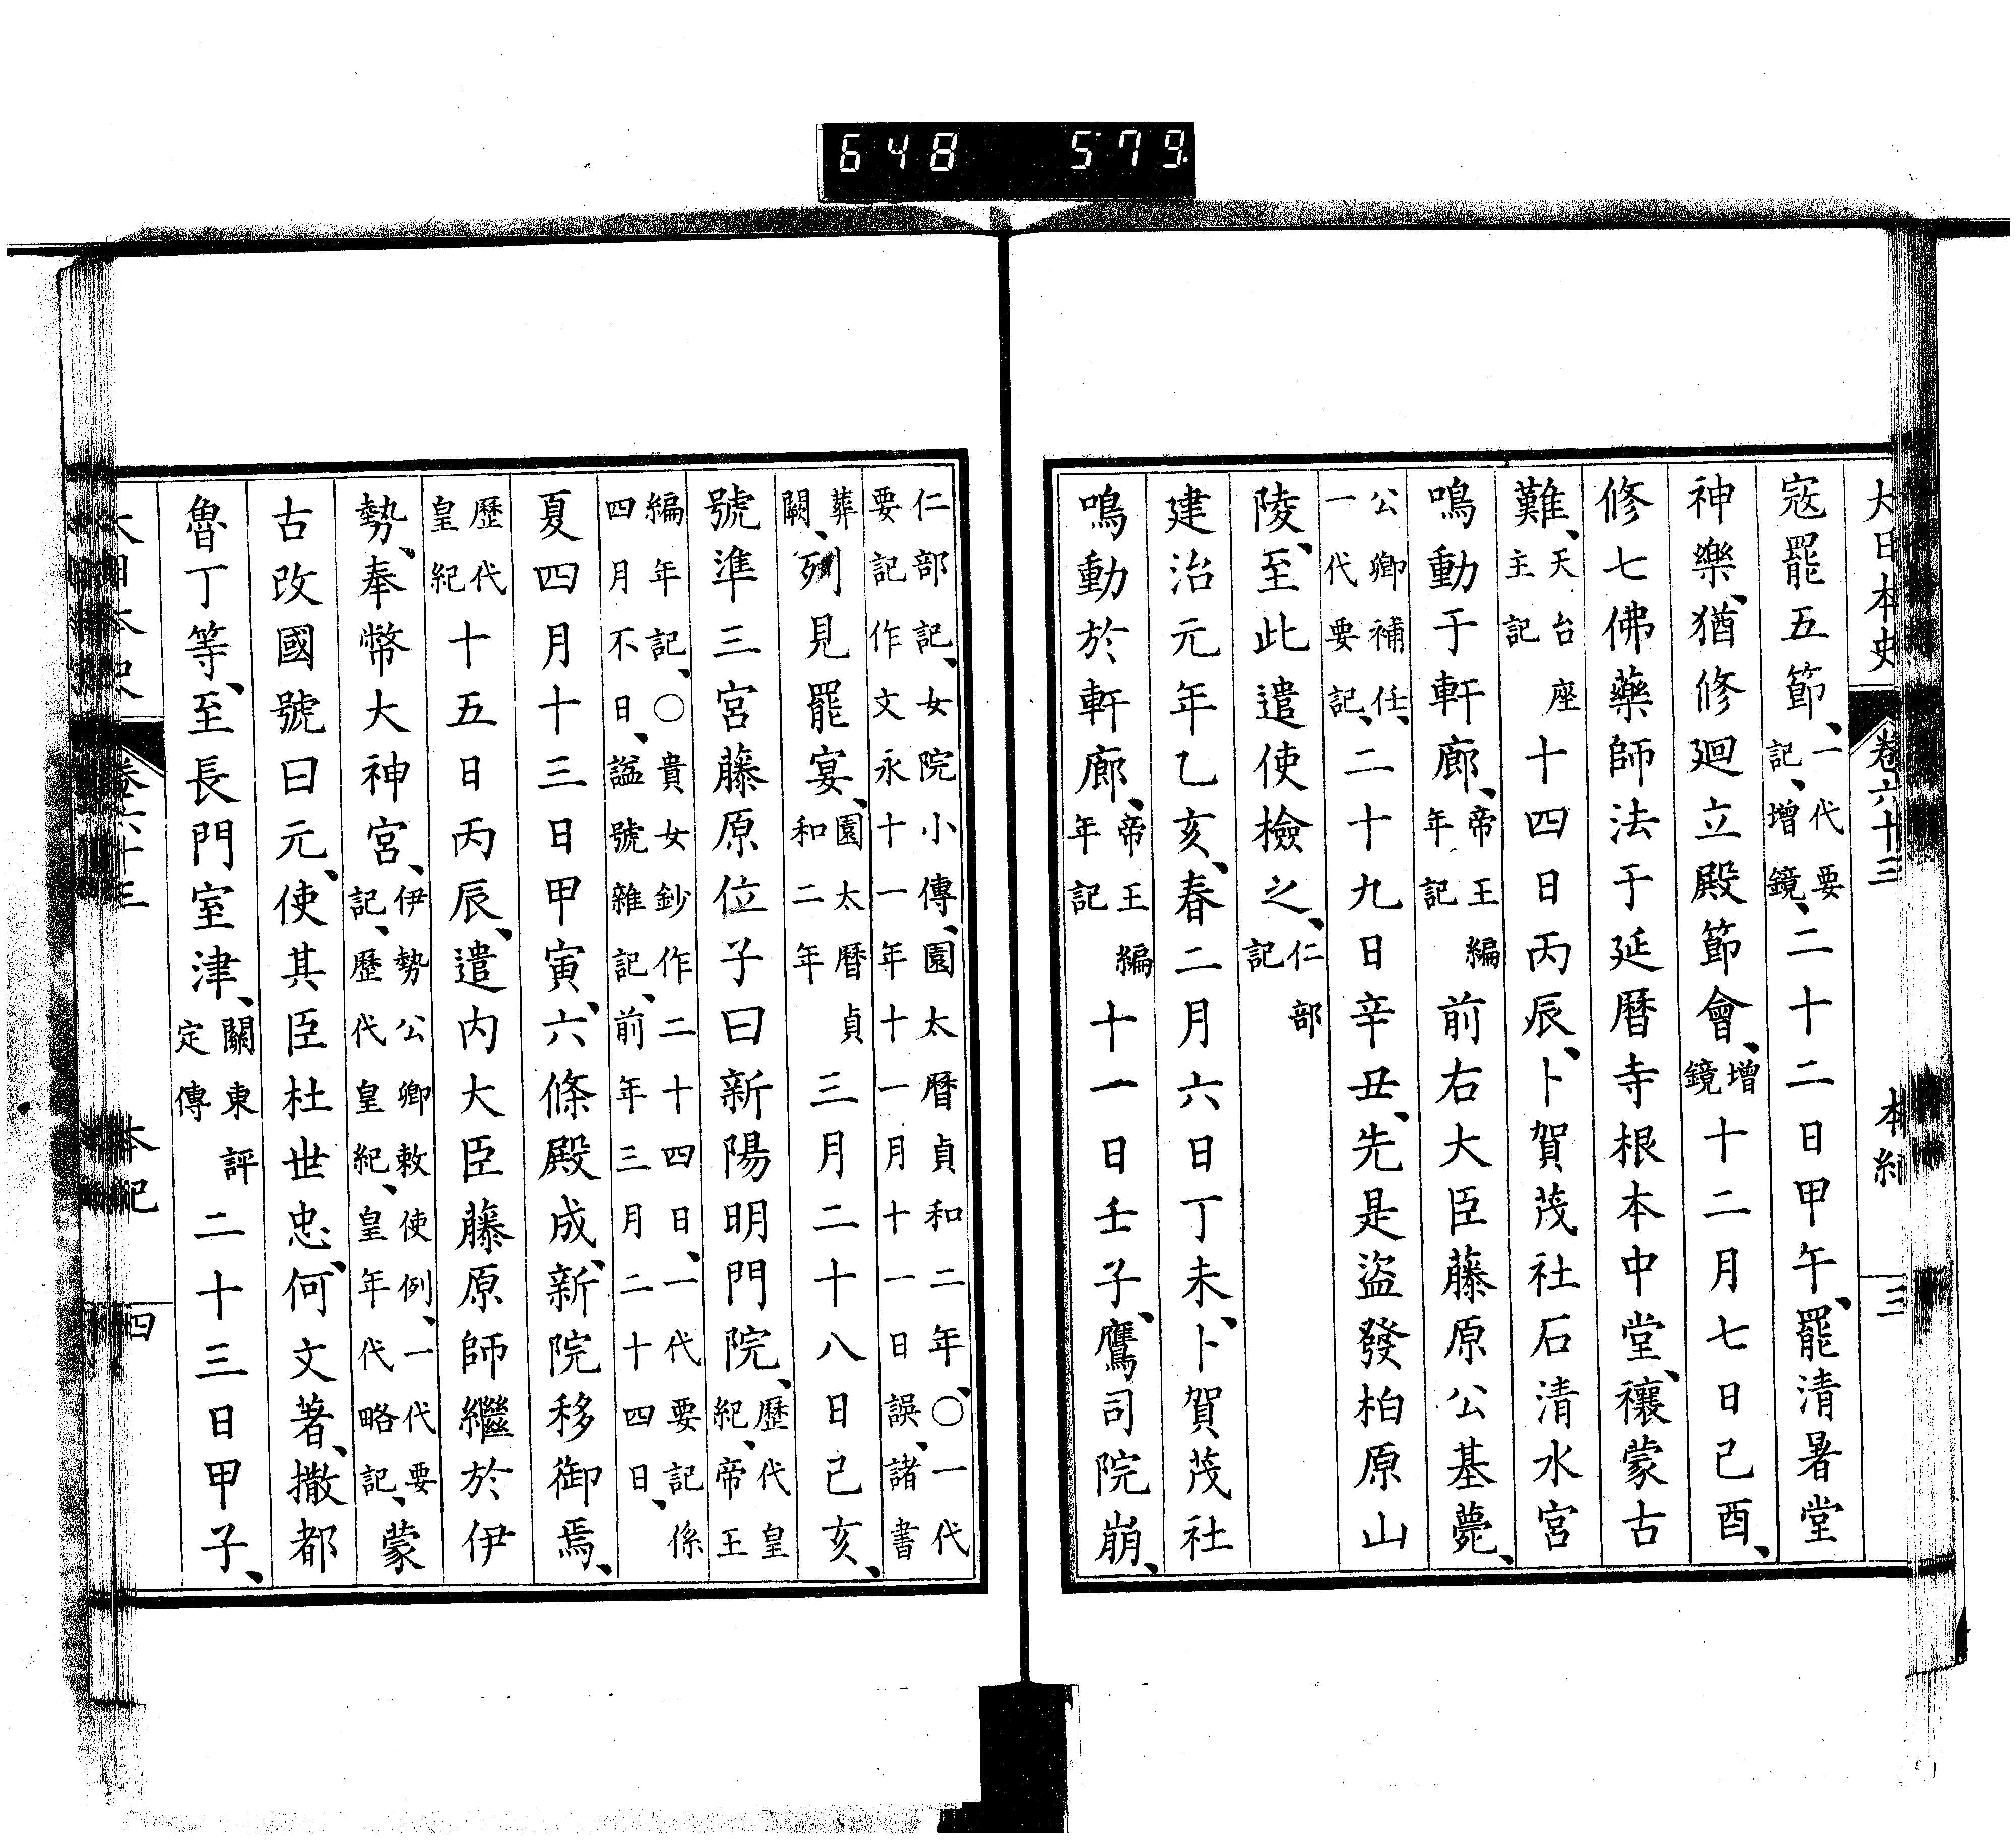 648 579
大日本史 卷六十三 本紀 三
寇罷五節、一代要記、增鏡、二十二日甲午、罷清暑堂
神樂、猶修廻立殿節會、增鏡十二月七日己酉、
修七佛藥師法于延曆寺根本中堂、禳蒙古
難、天台座主記十四日丙辰、卜賀茂社石清水宮
鳴動于軒廊、帝王編年記前右大臣藤原公基薨、
公卿補任、一代要記、二十九日辛丑、先是盜發柏原山
陵、至此遣使檢之、仁部記
建治元年乙亥、春二月六日丁未、卜賀茂社
鳴動於軒廊、帝王編年記十一日壬子、鷹司院崩、
仁部記、女院小傳、園太曆貞和二年、○一代
要記作文永十一年十一月十一日誤、諸書
葬闕、列見罷宴、園太曆貞和二年三月二十八日己亥、
號準三宮藤原位子曰新陽明門院、歷代皇紀、帝王
編年記、○貴女鈔作二十四日、一代要記係
四月不日、謚號雜記、前年三月二十四日、
夏四月十三日甲寅、六條殿成、新院移御焉、
歷代皇紀十五日丙辰、遣内大臣藤原師繼於伊
勢、奉幣大神宮、伊勢公卿敕使例、一代要記、歷代皇紀、皇年代略記、蒙
古改國號曰元、使其臣杜世忠、何文著、撒都
魯丁等、至長門室津、關東評定傳二十三日甲子、
大日本史 卷六十三 本紀 四